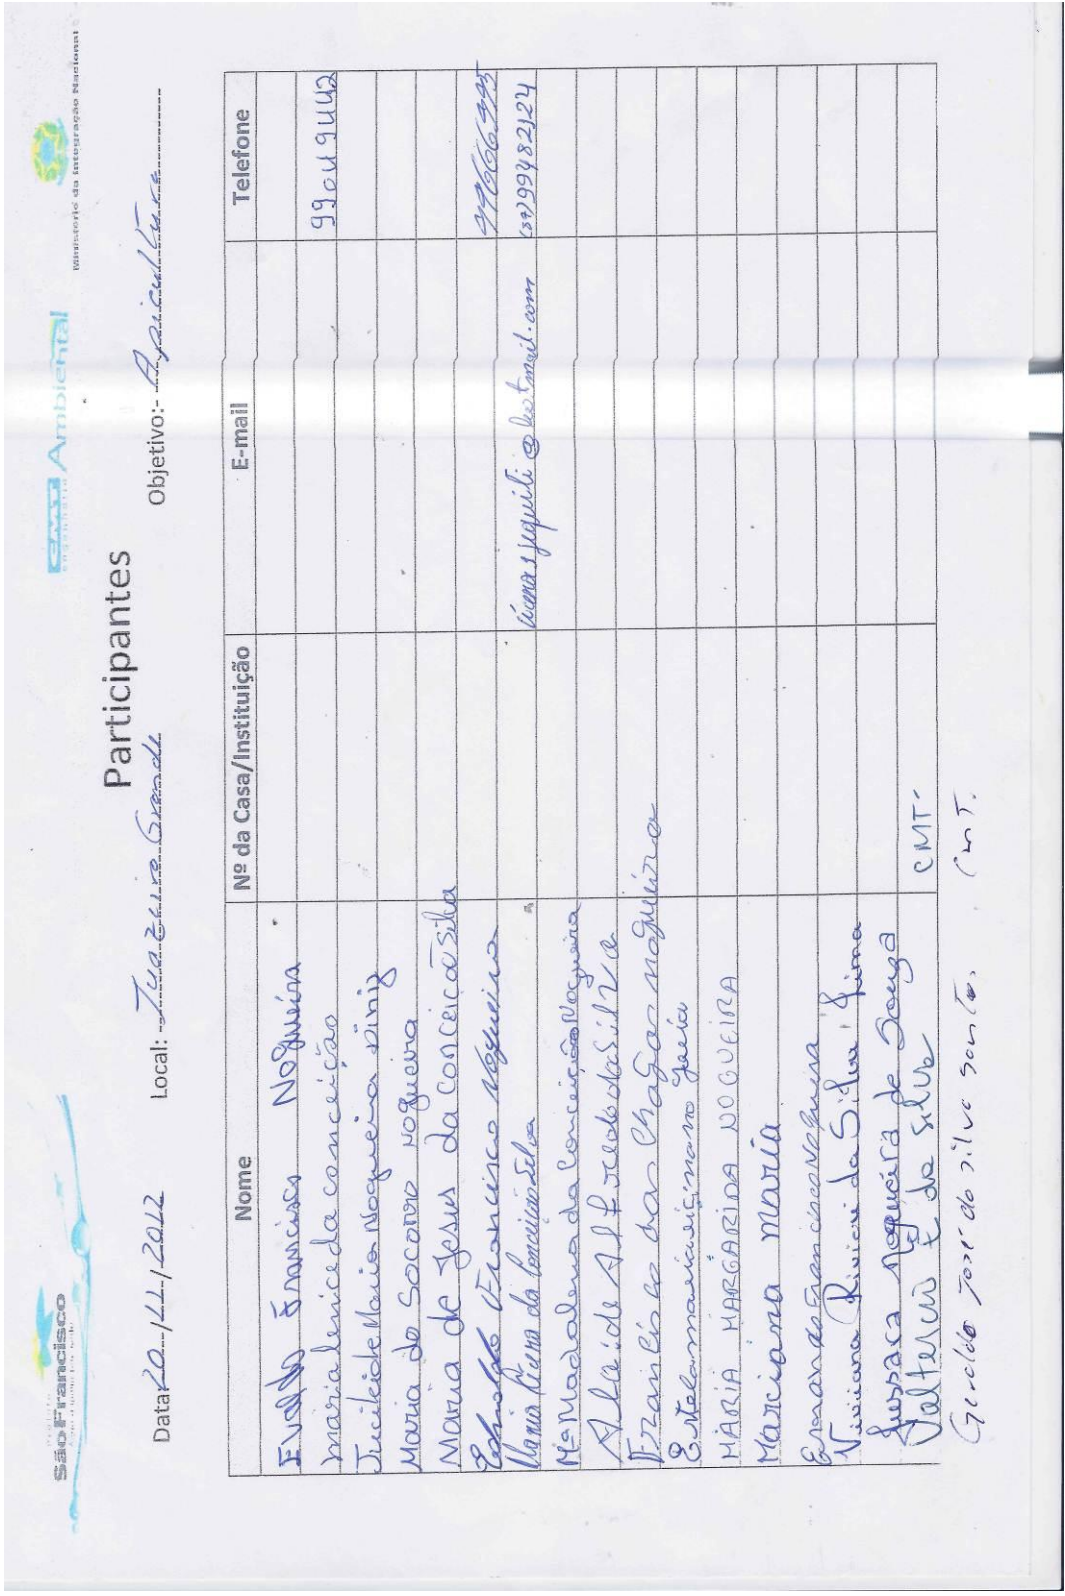 São Francisco
CMT Ambiental
engenharia
Ministério da Integração Nacional
Participantes
Data 20/11/2012 Local: Juazeiro Grande Objetivo:- Apicultura
Nome Nº da Casa/Instituição E-mail Telefone
Evaldo Francisco Nogueira
maria lenice da conceição 99049442
Jucikeide Maria Nogueira Diniz
Maria do Socorro Nogueira
Maria de Jesus da Conceicã Silva
Francisco Nogueira
da Conceição Silva @hotmail.com (87)99482124
Mª Madalena da Conceição Nogueira
Alaide da Silva
Francisco das Chagas nogueira
MARIA MARGARIDA NOGUEIRA
Marciana maria
Francisco Nogueira
Viviane Riviani da Silva Lima
Jussara Nogueira de Souza
Valterci F da Silva CMT.
Geraldo José da silva santos. CMT.